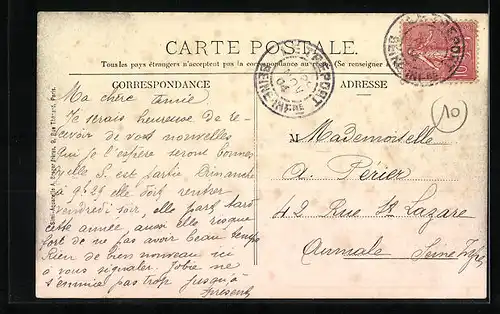 CARTE POSTALE.
Tous les pays étrangers n'acceptent pas la correspondance au (Se renseigner
CORRESPONDANCE
ADRESSE
Ma chère amie
Je serais heureuse de re-
cevoir de vos nouvelles
qui je l'espère seront bonnes
S. est partie Dimanche
à 9h28 elle doit rentrer
vendredi soir, elle part tard
cette année, aussi elle risque
fort de ne pas avoir beau temps
Rien de bien nouveau ici
à vous signaler. ne
s'ennuie pas trop jusqu'à
présent
M Mademoiselle
A. Périer
42 Rue St Lazare
Aumale Seine Infre
LE TREPORT
SEINE-INFRE
NOV
04
TREPORT
SEINE INFRE
10